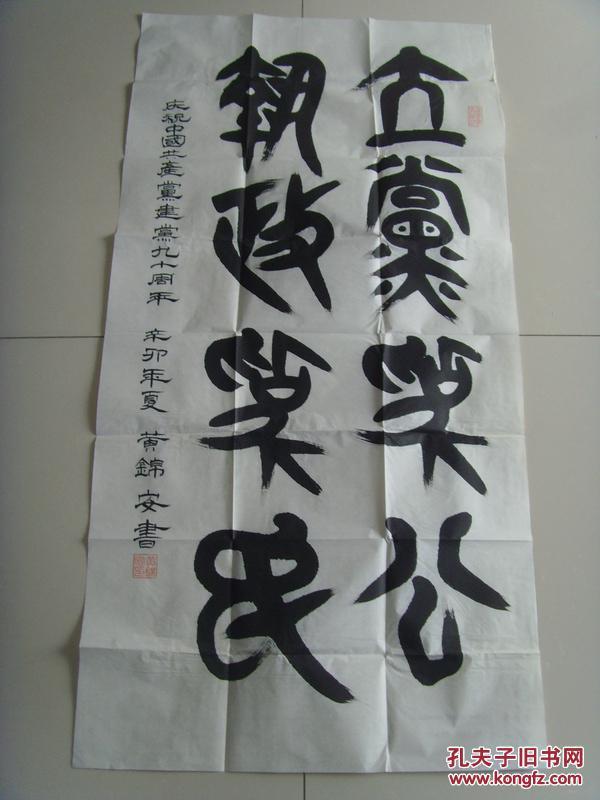 立黨為公
執政為民
庆祝中國共產黨建黨九十周年 辛卯年夏 黄錦安書
孔夫子旧书网
www.kongfz.com